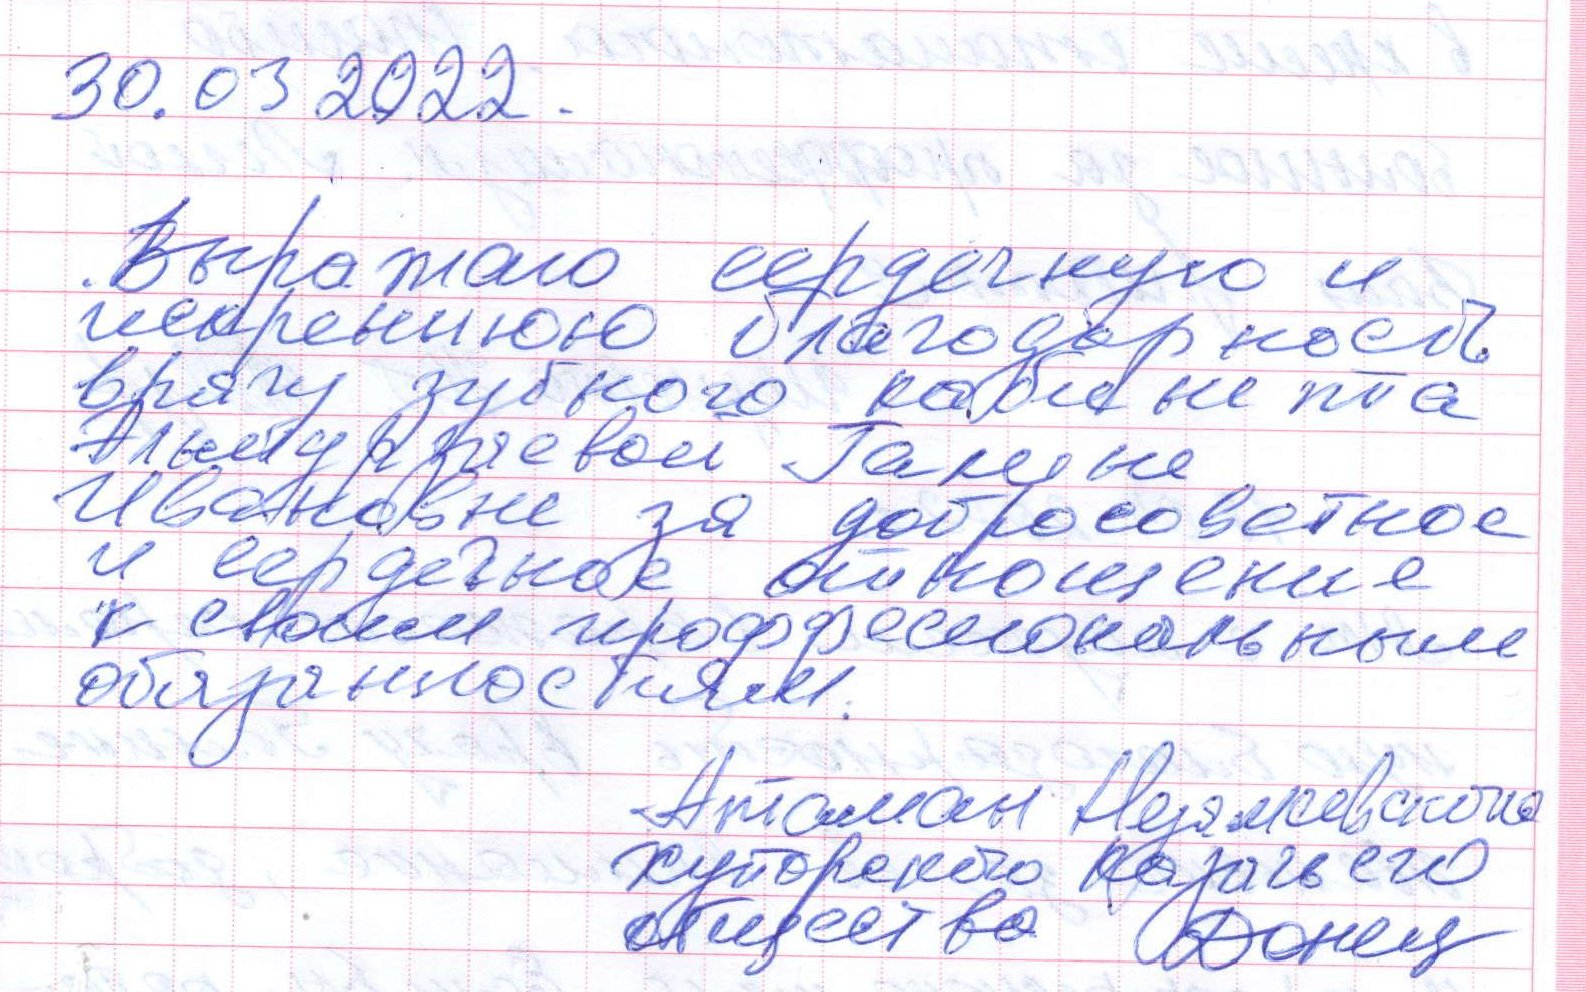 30.03 2022.
Выражаю сердечную и
искреннюю благодарность
врачу зубного кабинета
Галине
Ивановне за добросоветное
и сердечное отношение
к своим профессиональным
обязанностям.
Атаман
хуторского казачьего
общества Донец